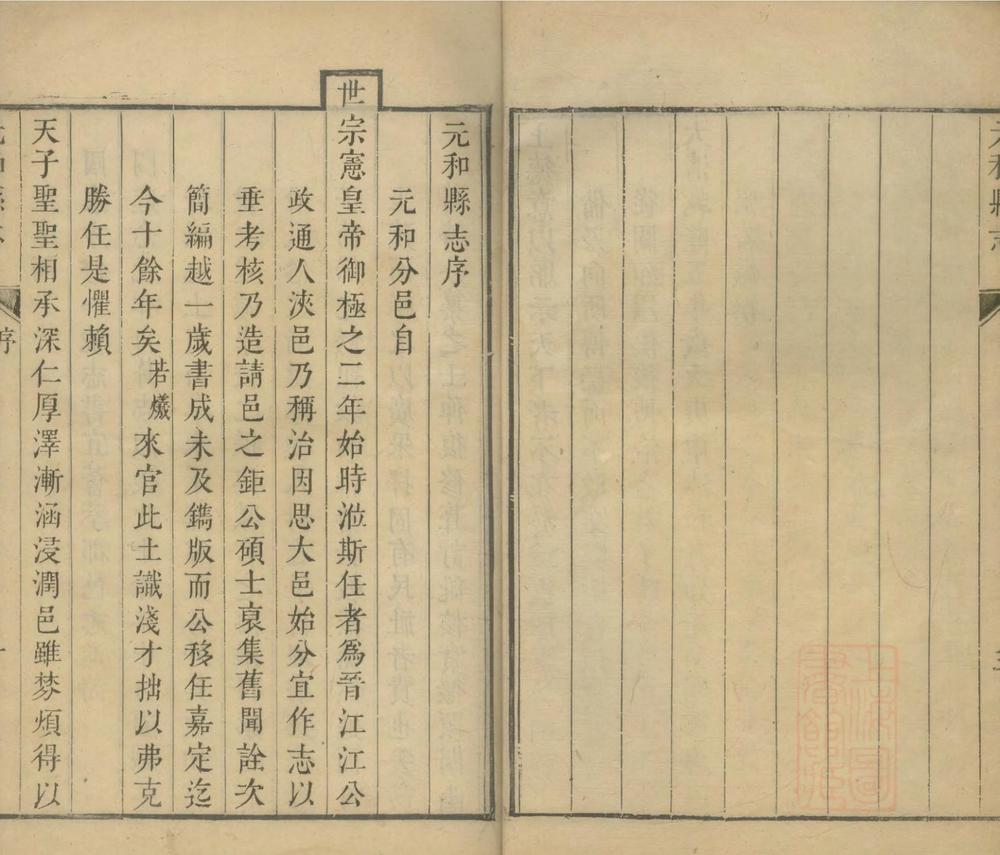 元和縣志
元和縣志序
元和分邑自
世宗憲皇帝御極之二年始時涖斯任者爲晉江江公
政通人浹邑乃稱治因思大邑始分宜作志以
垂考核乃造請邑之鉅公碩士裒集舊聞詮次
簡編越一歲書成未及鐫版而公移任嘉定迄
今十餘年矣若爔來官此土識淺才拙以弗克
勝任是懼賴
天子聖聖相承深仁厚澤漸涵浸潤邑雖棼煩得以
序